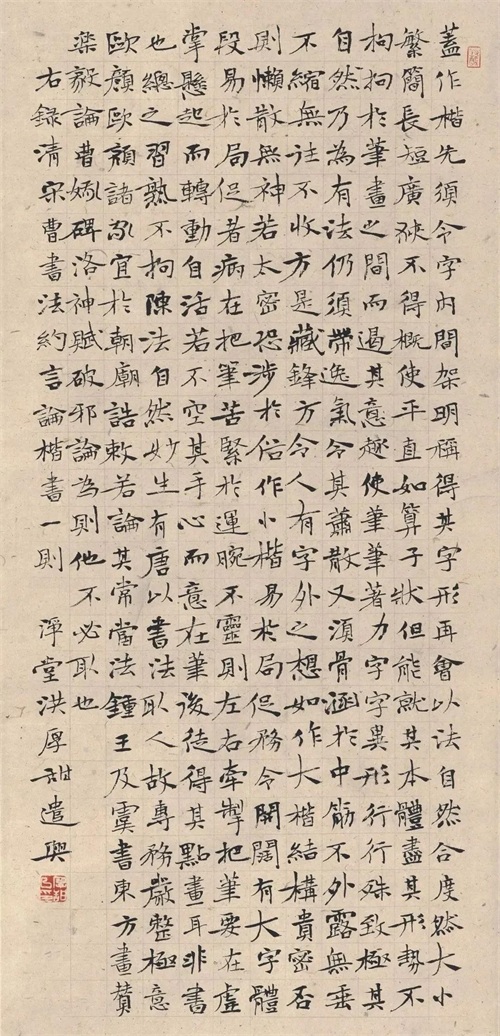 蓋作楷先須令字內間架明稱得其字形再會以法自然合度然大小
繁簡長短廣狹不得概使平直如算子狀但能就其本體盡其形勢不
拘拘於筆畫之間而遏其意趣使筆筆著力字字異形行行殊致極其
自然乃為有法仍須帶逸氣令其蕭散又須骨涵於中筋不外露無垂
不縮無往不收方是藏鋒方令人有字外之想如作大楷結構貴密否
則懶散無神若太密恐涉於俗作小楷易於局促務令開闊有大字體
段易於局促者病在把筆苦緊於運腕不靈則左右牽掣把筆要在虛
掌懸起而轉動自活若不空其手心而意在筆後徒得其點畫耳非書
也總之習熟不拘陳法自然妙生有唐以書法取人故專務嚴整極意
歐顏歐顏諸家宜於朝廟誥敕若論其常當法鍾王及虞書東方畫贊
樂毅論曹娥碑洛神賦破邪論為則他不必取也
右錄清宋曹書法約言論楷書一則 淨堂洪厚甜遣興